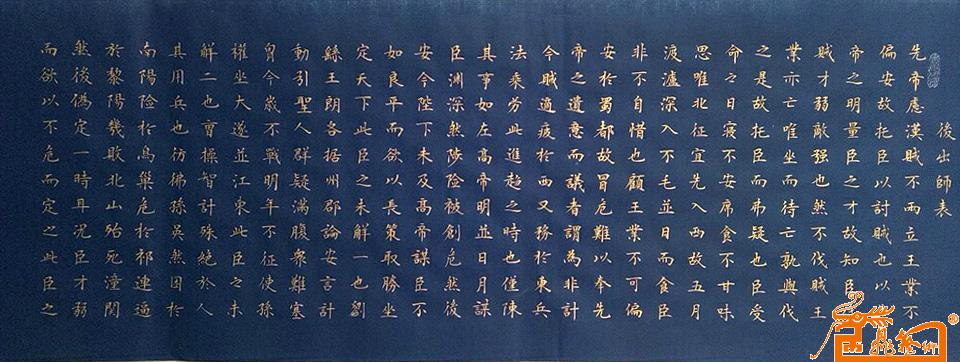 後出師表
先帝慮漢賊不兩立王業不
偏安故托臣以討賊也以先
帝之明量臣之才故知臣伐
賊才弱敵强也然不伐賊王
業亦亡唯坐而待亡孰與伐
之是故托臣而弗疑也臣受
命之日寢不安席食不甘味
思唯北征宜先入西故五月
渡瀘深入不毛並日而食臣
非不自惜也顧王業不可偏
安於蜀都故冒危難以奉先
帝之遺意而議者謂為非計
今賊適疲於西又務於東兵
法乘勞此進趨之時也僅陳
其事如左高帝明並日月謀
臣淵深然陟險被創危然後
安今陛下未及高帝謀臣不
如良平而欲以長策取勝坐
定天下此臣之未解一也劉
繇王朗各据州郡論安言計
動引聖人群疑滿腹衆難塞
胷今歲不戰明年不征使孫
權坐大遂並江東此臣之未
解二也曹操智計殊絕於人
其用兵也彷彿孫吳然困於
南陽險於烏巢危於祁連逼
於黎陽幾敗北山殆死潼關
然後偽定一時耳況臣才弱
而欲以不危而定之此臣之